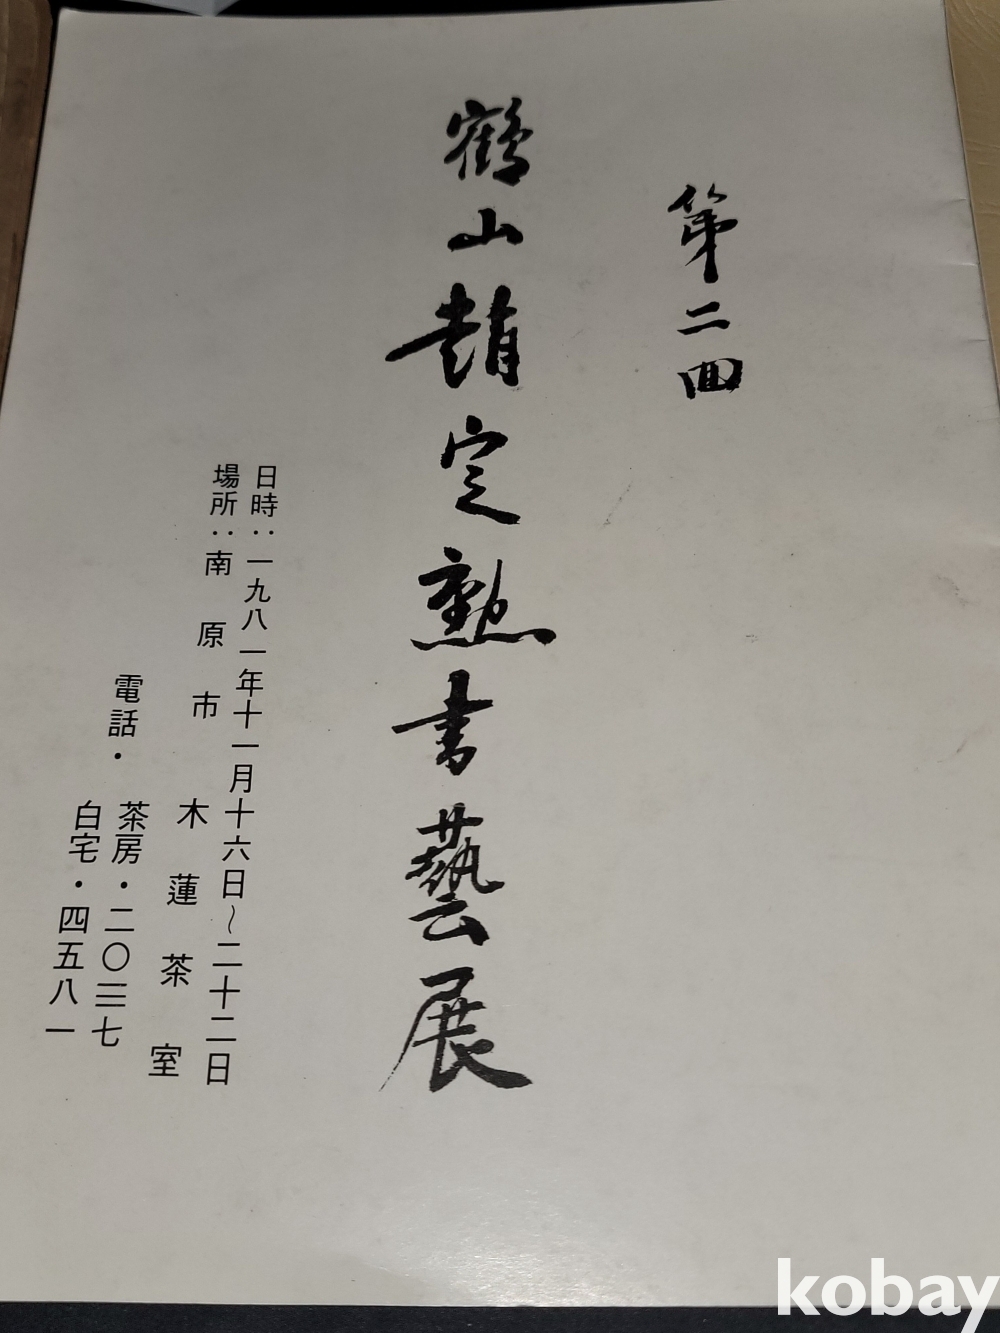 第二回
鶴山趙定勲書藝展
日時：一九八一年十一月十六日～二十二日
場所：南原市 木蓮茶室
電話・茶房・二〇三七
白宅・四五八一
kobay